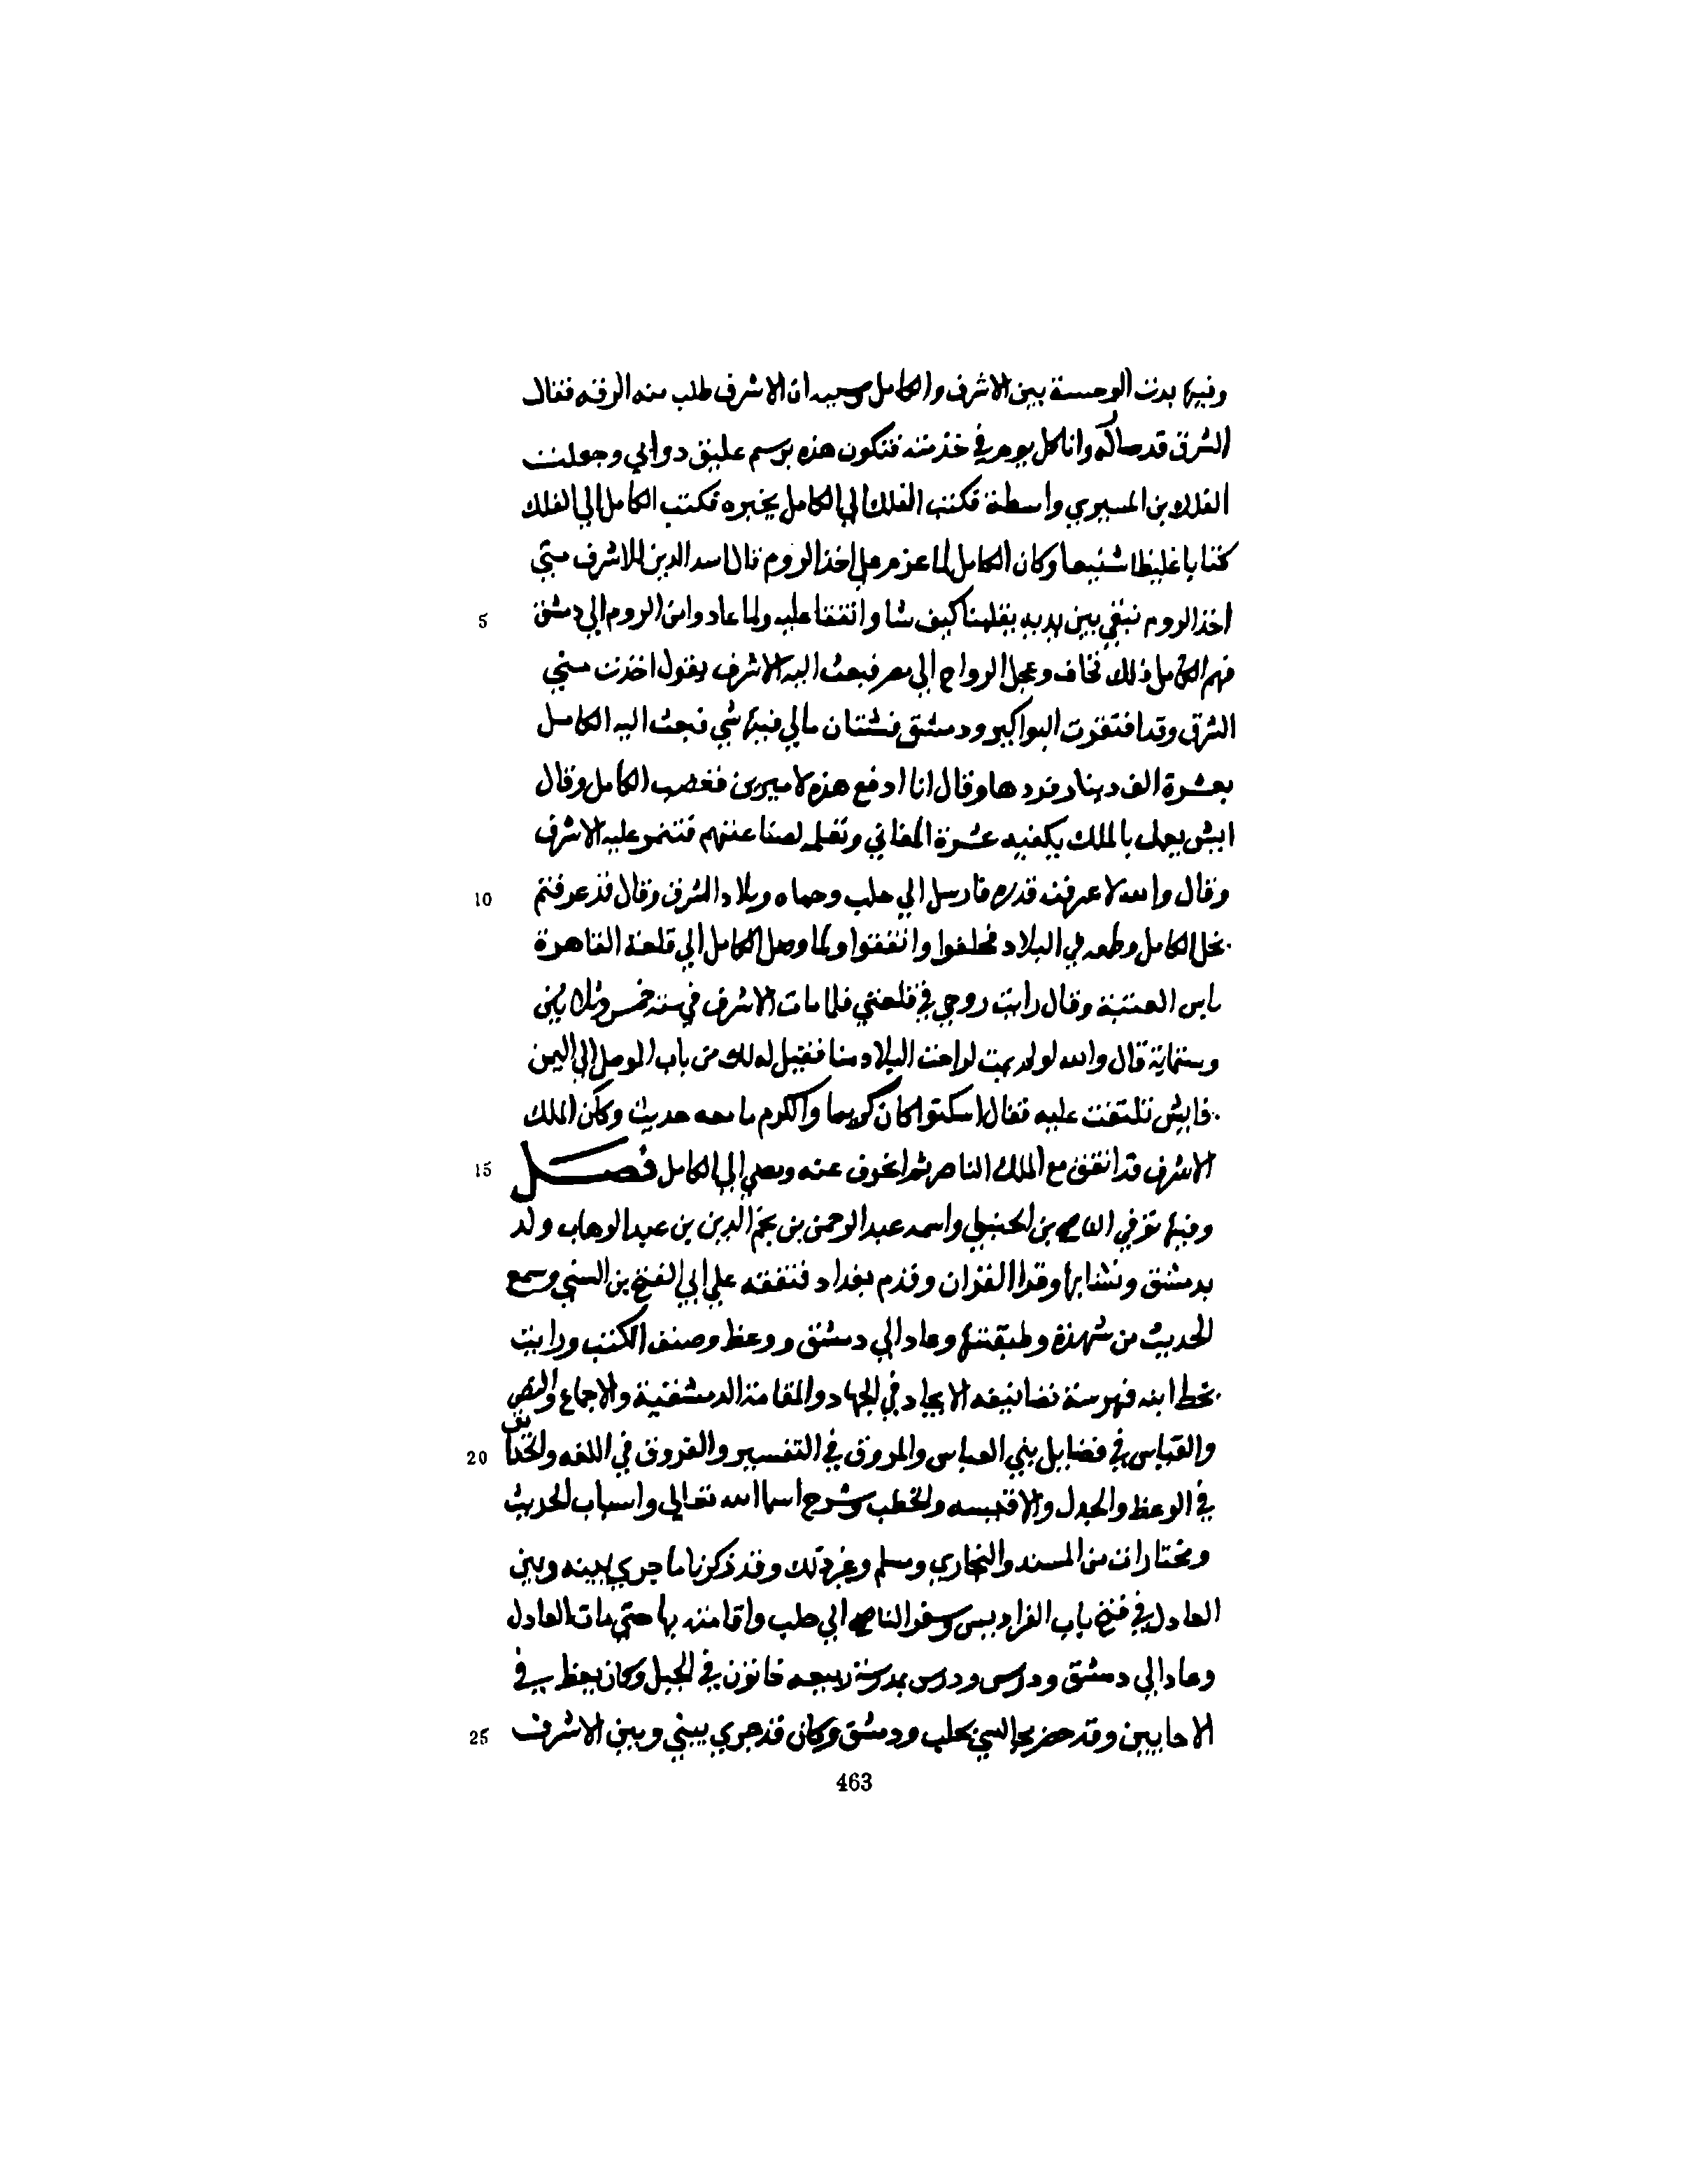 وفيها بدت الوحشة بين الاشرف والكامل وسببه ان الاشرف طلب منه الرقه فقال
الشرق قد صاله وانا كل يوم في خدمته فتكون هذه برسم عليق دوابي وجعلت
الفلك بن المسيري واسطة فكتب الفلك الي الكامل يخبره فكتب الكامل الي الفلك
كتابا غليظا شنيعا وكان الكامل لما عزم علي اخذ الروم قال اسد الدين للاشرف متي
اخذ الروم نبقي بين يديه يقلبنا كيف شا واتفقا عليه ولما عادوا من الروم الي دمشق
فهم الكامل ذلك فخاف وعجل الرواح الي مصر فبعث اليه الاشرف يقول اخذت مني
الشرق وقد افتقرت البواكير ودمشق فشتان مالي فيها شي فبعث اليه الكامل
بعشرة الف دينار فردها وقال انا ادفع هذه لاميرين فغضب الكامل وقال
ايش يعمل بالملك يكفيه عشرة المغاني وتعلمه لصناعتهم فتنمر عليه الاشرف
وقال والله لاعرفنه قدره فارسل الي حلب وحماه وبلاد الشرق وقال قد عرفتم
بخل الكامل وطمعه في البلاد فحلفوا واتفقوا ولما وصل الكامل الي قلعة القاهرة
باس العتبة وقال رايت روحي في قلعتي فلما مات الاشرف في سنة خمس وثلاثين
وستماية قال والله لو لم يمت لراحت البلاد منا فقيل له لك من باب الموصل الي اليمن
فايش تلتفت عليه فقال اسكتوا كان كريما والكرم ما معه حديث وكان الملك
الاشرف قد اتفق مع الملك الناصر ثم انحرف عنه ومضي الي الكامل فصل
وفيها توفي الناصح بن الحنبلي واسمه عبد الرحمن بن نجم الدين بن عبد الوهاب ولد
بدمشق ونشا بها وقرا القران وقدم بغداد فتفقه علي ابي الفتح بن المني وسمع
الحديث من شهدة وطبقتها وعاد الي دمشق ووعظ وصنف الكتب ورايت
بخط ابنه فهرسة تصانيفه الانجاد في الجهاد والمقامة الدمشقية والاجماع والنص
والقياس في فضايل بني العباس والبروق في التفسير والفروق في اللغه والحدايق
في الوعظ والجدل والاقيسه والخطب وشرح اسما الله تعالي واسباب الحديث
ومختارات من المسند والبخاري ومسلم وغير ذلك وقد ذكرنا ما جري بينه وبين
العادل في فتح باب الفراديس وسفر الناصح الي حلب واقامته بها حتي مات العادل
وعاد الي دمشق ودرس ودرس بمدرسة ربيعه خاتون في الجبل وكان يعظ في
الاحايين وقد حضر مجالسي بحلب ودمشق وكان قد جري بيني وبين الاشرف
5
10
15
20
25
463